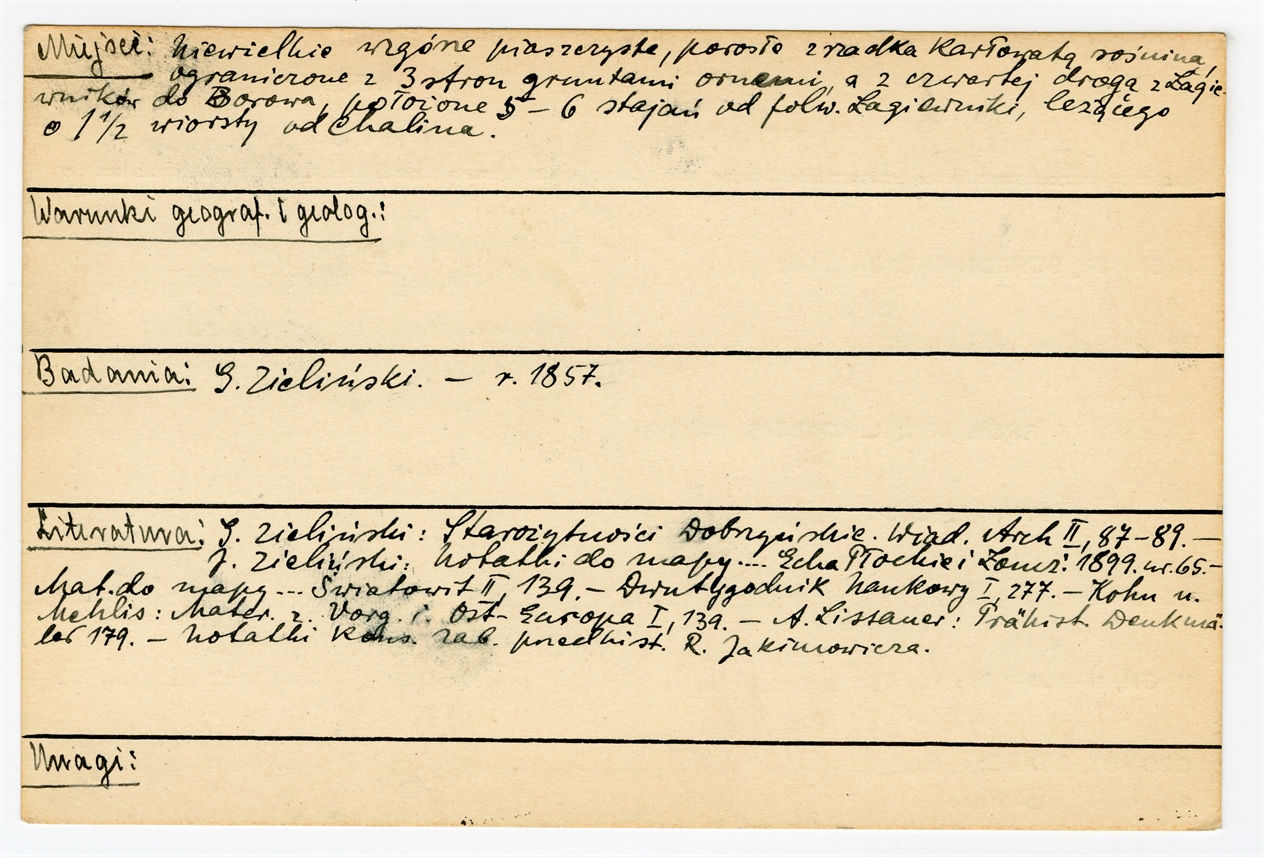 Miejsce: Niewielkie wzgórze piaszczyste, porosłe zrzadka karłowatą sośniną,
ograniczone z 3 stron gruntami ornemi, a z czwartej drogą z Łagie-
wników do Borowa, położone 5 – 6 stajań od folw. Łagiewniki, leżącego
o 1 1/2 wiorsty od Chalina.
Warunki geograf. i geolog.:
Badania: G. Zieliński. – r. 1857.
Literatura: G. Zieliński: Starożytności Dobrzyńskie. Wiad. Arch II, 87–89. –
J. Zieliński: Notatki do mapy.... Echa Płockie i Łomż. 1899. nr. 65. –
Mat. do mapy... Światowit II, 139. – Dwutygodnik Naukowy I, 277. – Kohn u.
Mehlis: Mater. z. Vorg. i. Ost-Europa I, 139. – A. Lissauer: Prähist. Denkmä-
ler 179. – Notatki Kons. zab. przedhist. R. Jakimowicza.
Uwagi: